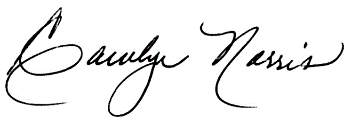 Carolyn Norris